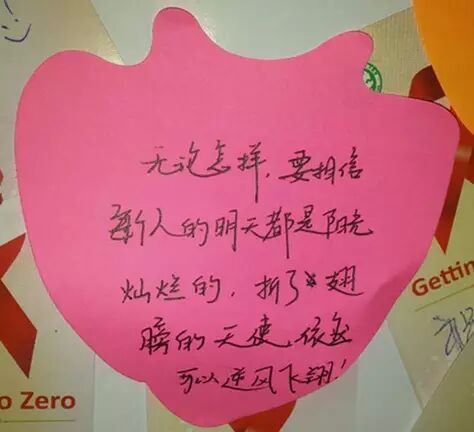 无论怎样，要相信
每个人的明天都是阳光
灿烂的，折了翅
膀的天使，依然
可以逆风飞翔！
Getting
o Zero